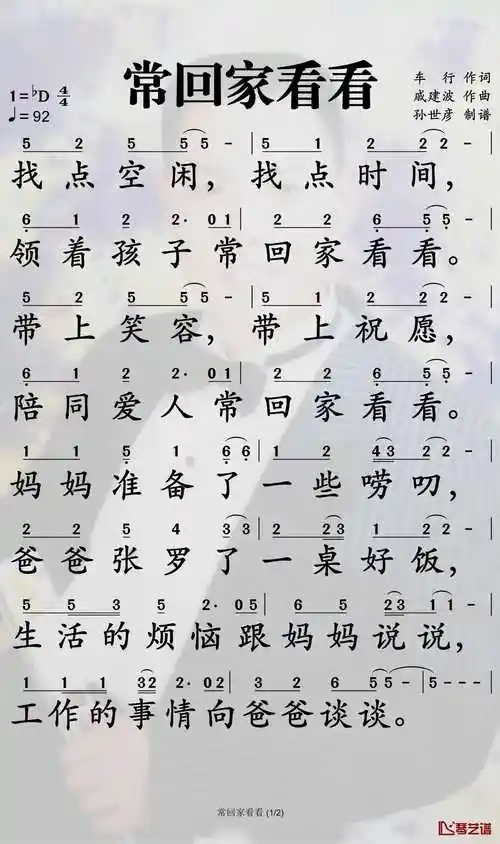 常回家看看
车行 作词
1=♭D 4/4
戚建波 作曲
♩=92
孙世彦 制谱
5 2 5 5 5 - | 5 1 2 5 5 - |
找点空闲，找点时间，
6 1 2 2· 0 1 | 2 2 6 5 5 - |
领着孩子常回家看看。
5 2 5 5 5 - | 5 1 2 5 5 - |
带上笑容，带上祝愿，
6 1 2 2· 0 1 | 2 2 6 5 5 - |
陪同爱人常回家看看。
1 1 5 1 6 6 | 1 2 4 3 2 2 - |
妈妈准备了一些唠叨，
2 2 5 4 3 3 | 2 2 3 1 2 2 - |
爸爸张罗了一桌好饭，
5 5 3 5 2· 0 5 | 6 5 2 3 1 1 - |
生活的烦恼跟妈妈说说，
1 1 1 3 2 2· 0 2 | 3 2 6 5 5 - | 5 - - - |
工作的事情向爸爸谈谈。
常回家看看 (1/2)
琴艺谱